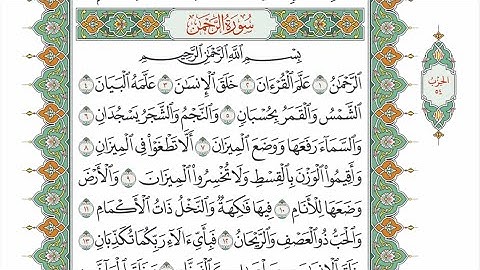 سُورَةُ الرَّحْمَٰن
بِسْمِ اللَّهِ الرَّحْمَٰنِ الرَّحِيمِ
الرَّحْمَٰنُ ١ عَلَّمَ الْقُرْءَانَ ٢ خَلَقَ الْإِنسَٰنَ ٣ عَلَّمَهُ الْبَيَانَ ٤
الشَّمْسُ وَالْقَمَرُ بِحُسْبَانٍ ٥ وَالنَّجْمُ وَالشَّجَرُ يَسْجُدَانِ ٦
وَالسَّمَاءَ رَفَعَهَا وَوَضَعَ الْمِيزَانَ ٧ أَلَّا تَطْغَوْا فِي الْمِيزَانِ ٨
وَأَقِيمُوا الْوَزْنَ بِالْقِسْطِ وَلَا تُخْسِرُوا الْمِيزَانَ ٩ وَالْأَرْضَ
وَضَعَهَا لِلْأَنَامِ ١٠ فِيهَا فَٰكِهَةٌ وَالنَّخْلُ ذَاتُ الْأَكْمَامِ ١١
وَالْحَبُّ ذُو الْعَصْفِ وَالرَّيْحَانُ ١٢ فَبِأَيِّ ءَالَاءِ رَبِّكُمَا تُكَذِّبَانِ ١٣
الحِزْبُ
٥٤